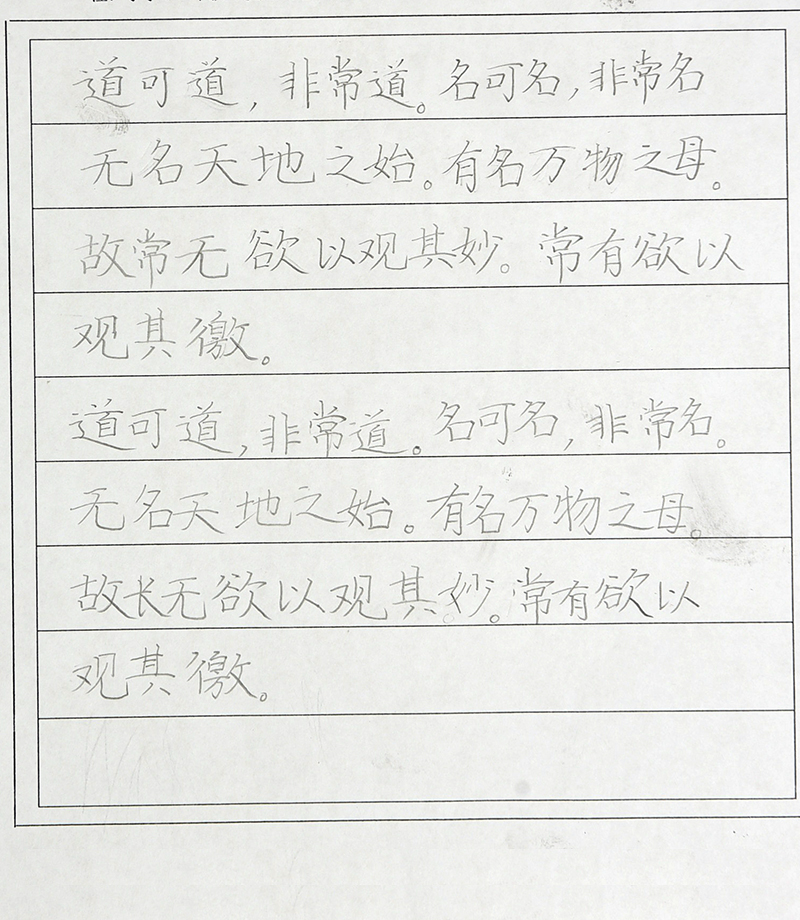 道可道，非常道。名可名，非常名
无名天地之始。有名万物之母。
故常无欲以观其妙。常有欲以
观其徼。
道可道，非常道。名可名，非常名。
无名天地之始。有名万物之母。
故长无欲以观其妙。常有欲以
观其徼。